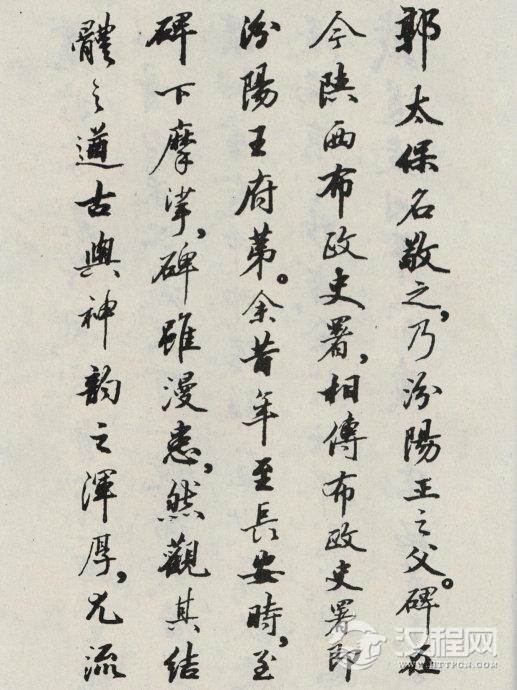 郭太保名敬之,乃汾陽王之父。碑在
今陝西布政史署,相傳布政史署即
汾陽王府第。余昔年至長安時,至
碑下摩挲,碑雖漫患,然觀其結
體之遒古與神韵之渾厚,尤流
汉程网
HTTPCN.COM